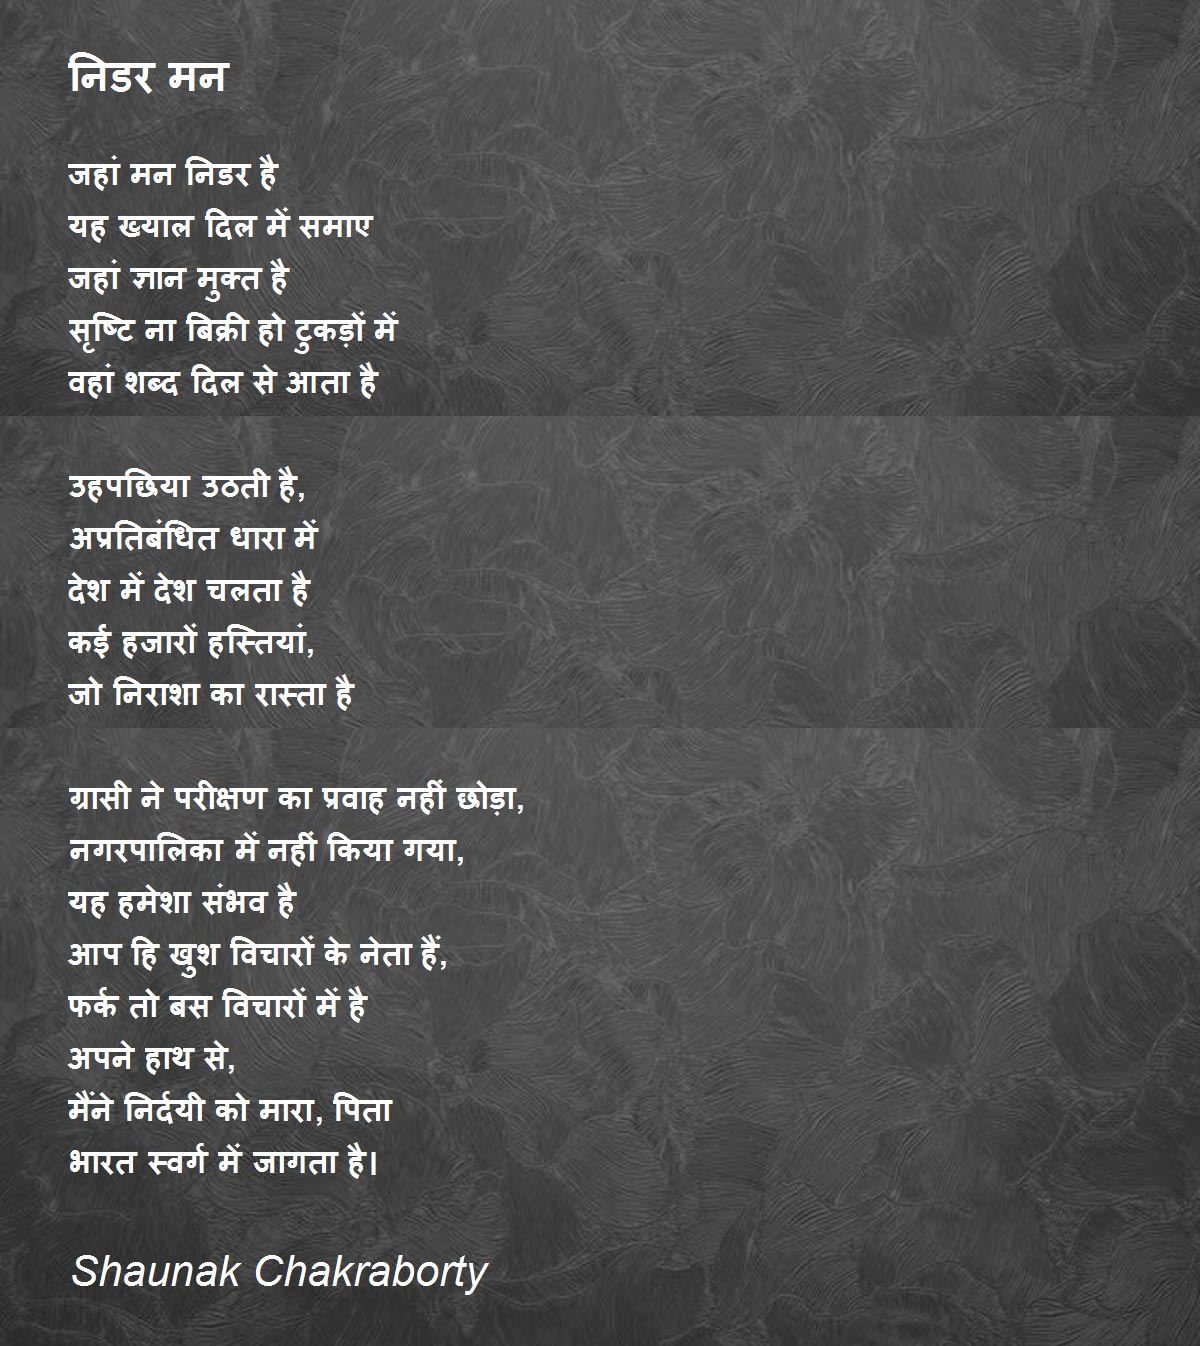 निडर मन
जहां मन निडर है
यह ख्याल दिल में समाए
जहां ज्ञान मुक्त है
सृष्टि ना बिक्री हो टुकड़ों में
वहां शब्द दिल से आता है
उहपछिया उठती है,
अप्रतिबंधित धारा में
देश में देश चलता है
कई हजारों हस्तियां,
जो निराशा का रास्ता है
ग्रासी ने परीक्षण का प्रवाह नहीं छोड़ा,
नगरपालिका में नहीं किया गया,
यह हमेशा संभव है
आप हि खुश विचारों के नेता हैं,
फर्क तो बस विचारों में है
अपने हाथ से,
मैंने निर्दयी को मारा, पिता
भारत स्वर्ग में जागता है।
Shaunak Chakraborty